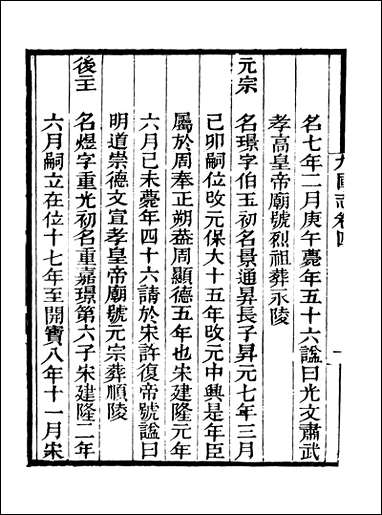 九國志卷四
一
名七年二月庚午薨年五十六謚曰光文肅武
孝高皇帝廟號烈祖葬永陵
元宗 名璟字伯玉初名景通昇長子昇元七年三月
己卯嗣位改元保大十五年改元中興是年臣
屬於周奉正朔葢周顯德五年也宋建隆元年
六月己未薨年四十六請於宋許復帝號謚曰
明道崇德文宣孝皇帝廟號元宗葬順陵
後主 名煜字重光初名重嘉璟第六子宋建隆二年
六月嗣立在位十七年至開寶八年十一月宋